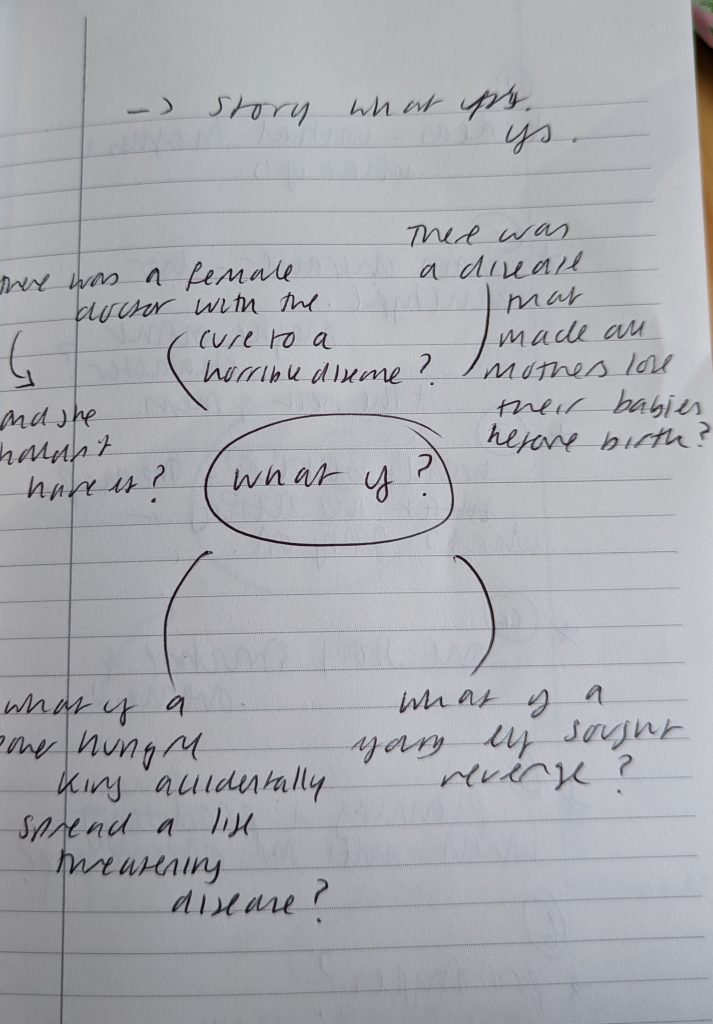 -> story what if's.
ifs.
There was a female
doctor with the
cure to a
horrible disease?
and she
have it?
There was
a disease
that
made all
mothers lose
their babies
before birth?
what if?
what if a
hungry
king accidentally
spread a life
threatening
disease?
what if a
young elf sought
revenge?